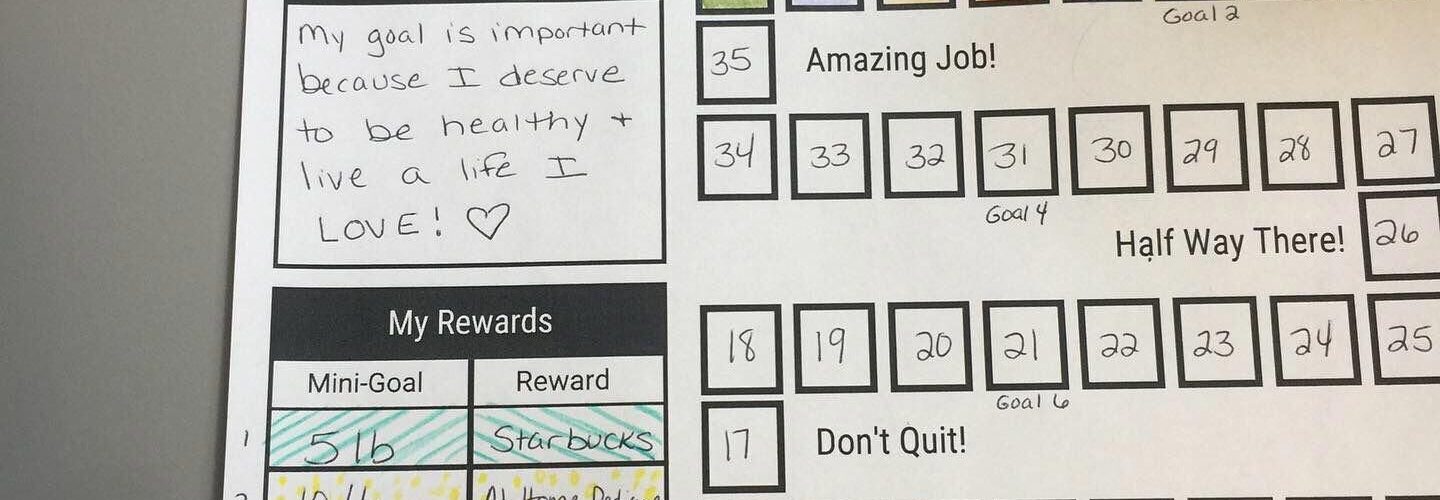 My goal is important
because I deserve
to be healthy +
live a life I
LOVE! ♡
My Rewards
Mini-Goal Reward
1 5 lb Starbucks
2
Goal 2
35 Amazing Job!
34 33 32 31 30 29 28 27
Goal 4
Half Way There! 26
18 19 20 21 22 23 24 25
Goal 6
17 Don't Quit!